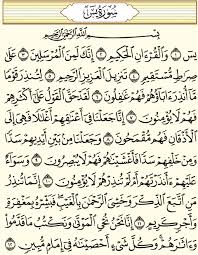 سورة يس
بسم الله الرحمن الرحيم
يس ١ والقرءان الحكيم ٢ إنك لمن المرسلين ٣ على
صراط مستقيم ٤ تنزيل العزيز الرحيم ٥ لتنذر قوما
ما أنذر ءاباؤهم فهم غافلون ٦ لقد حق القول على أكثرهم
فهم لا يؤمنون ٧ إنا جعلنا في أعناقهم أغلالا فهي إلى
الأذقان فهم مقمحون ٨ وجعلنا من بين أيديهم سدا
ومن خلفهم سدا فأغشيناهم فهم لا يبصرون ٩ وسواء
عليهم ءأنذرتهم أم لم تنذرهم لا يؤمنون ١٠ إنما تنذر
من اتبع الذكر وخشي الرحمن بالغيب فبشره بمغفرة
وأجر كريم ١١ إنا نحن نحي الموتى ونكتب ما قدموا
وءاثارهم وكل شيء أحصيناه في إمام مبين ١٢